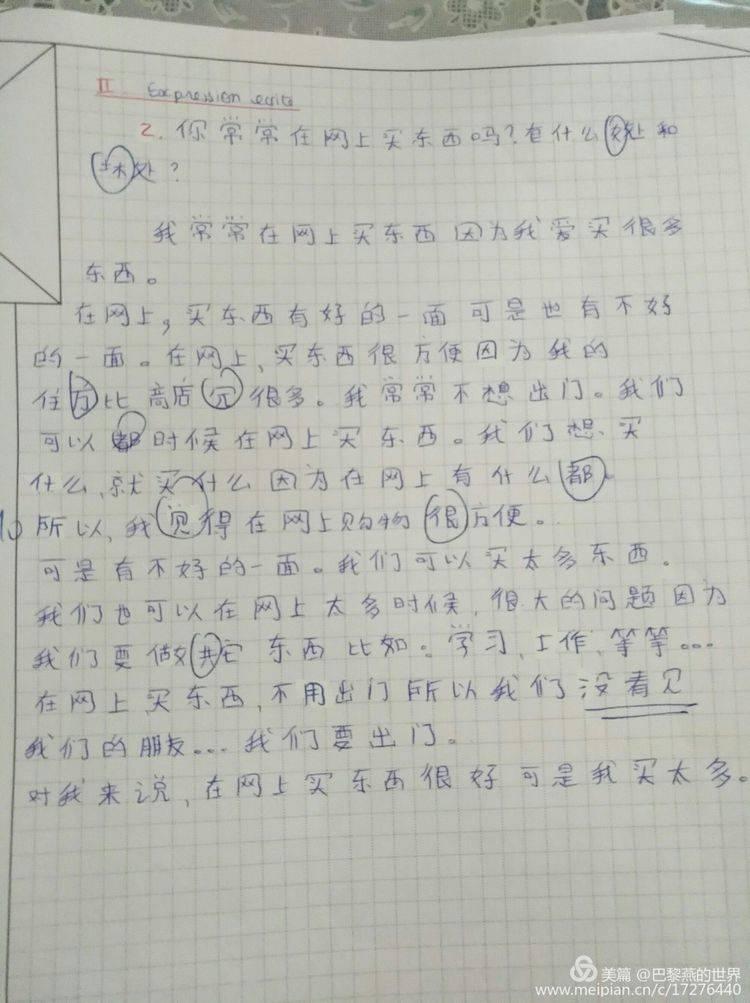 II Expression écrite
2. 你常常在网上买东西吗？有什么好处和
坏处？
我常常在网上买东西因为我爱买很多
东西。
在网上，买东西有好的一面可是也有不好
的一面。在网上、买东西很方便因为我的
住方比商店元很多。我常常不想出门。我们
可以都时候在网上买东西。我们想、买
什么、就买什么因为在网上有什么都。
所以、我觉得在网上购物很方便。
可是有不好的一面。我们可以买太多东西。
我们也可以在网上太多时候、很大的问题因为
我们要做其它东西比如。学习、工作、等等...
在网上买东西、不用出门所以我们没看见
我们的朋友...我们要出门。
对我来说、在网上买东西很好可是我买太多。
美篇 @巴黎燕的世界
www.meipian.cn/c/17276440